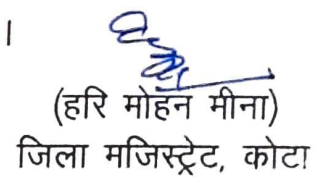 ।
(हरि मोहन मीना)
जिला मजिस्ट्रेट, कोटा